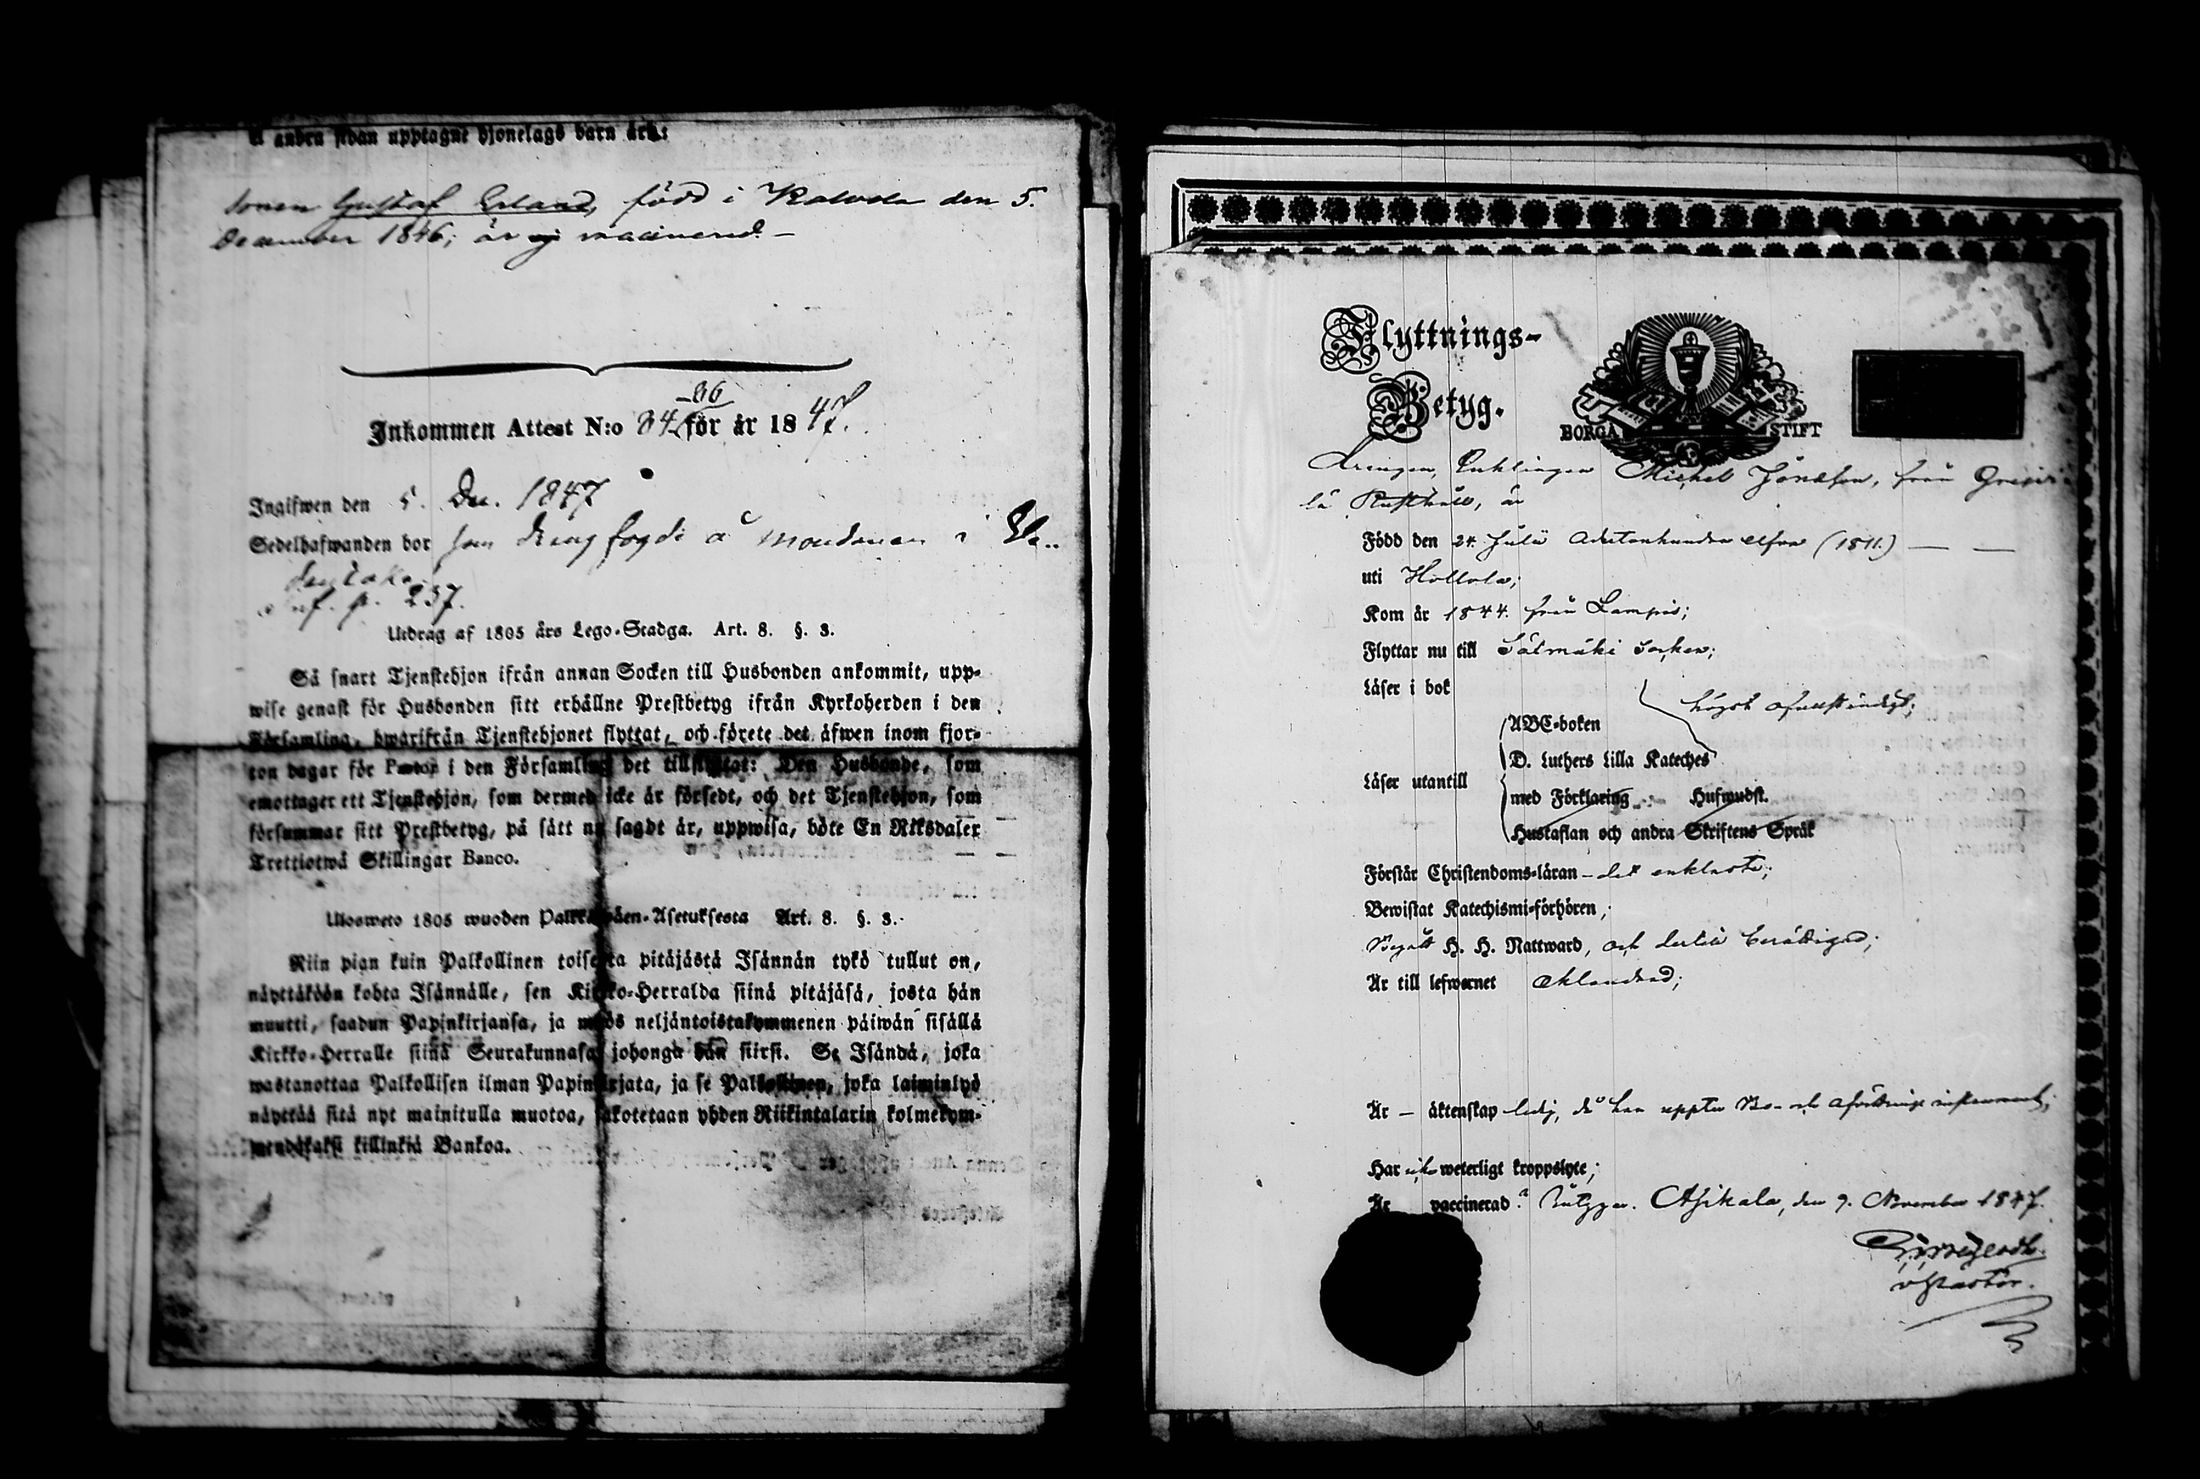 å andra sidan upptagne hjonelags barn äro:
sonen Gustaf Erland, född i Kalvola den 5.
December 1846; är ej vaccinerad. –
86
Inkommen Attest N:o 84 för år 1847.
Ingifwen den 5. Dec. 1847
Sedelhafwanden bor som drengfogde å
Inf. p. 237.
Utdrag af 1805 års Lego-Stadga. Art. 8. §. 3.
Så snart Tjenstehjon ifrån annan Socken till Husbonden ankommit, upp-
wise genast för Husbonden sitt erhållne Prestbetyg ifrån Kyrkoherden i den
Församling, hwarifrån Tjenstehjonet flyttat, och förete det äfwen inom fjor-
ton dagar för Pastor i den Församling det tillflyttat: Den Husbonde, som
emottager ett Tjenstehjon, som dermed icke är försedt, och det Tjenstehjon, som
försummar sitt Prestbetyg, på sätt nu sagdt är, uppwisa, böte En Riksdaler
Trettiotwå Skillingar Banco.
Ulosweto 1805 wuoden Palkkawäen-Asetuksesta Art. 8. §. 3.
Niin pian kuin Palkollinen toisesta pitäjästä Isännän tykö tullut on,
näyttäköön kohta Isännälle, sen Kirkko-Herralda siinä pitäjäsä, josta hän
muutti, saadun Papinkirjansa, ja myös neljäntoistakymmenen päiwän sisällä
Kirkko-Herralle siinä Seurakunnasa johonga hän siirsi. Se Isändä, joka
wastanottaa Palkollisen ilman Papinkirjata, ja se Palkollinen, joka laiminlyö
näyttää sitä nyt mainitulla muotoa, sakotetaan yhden Riikintalarin kolmekym-
mendäkaksi killinkiä Bankoa.
Flyttnings-
Betyg.
BORGÅ STIFT
Drengen, Enklingen Michel Jönsson, från
lä Rusthåll, är
Född den 24 Julii Adertonhundra elfva (1811.) — —
uti Hollola;
Kom år 1844 från Lampis;
Flyttar nu till Sälmäki Socken;
Läser i bok högst ofullständigt;
ABC-boken
D. Luthers Lilla Kateches
Läser utantill
med Förklaring Hufwudst.
Hustaflan och andra Skriftens Språk
Förstår Christendoms-läran – det enklaste;
Bewistat Katechismi-förhören;
Begått H. H. Nattward, och dertill berättigad;
Är till lefwernet oklandrad;
Är – äktenskap ledig, då han uppter Bo- och Afvittrings instrument;
Har icke weterligt kroppslyte;
Är vaccinerad? Betygar. Asikkala, den 9. November 1847.
v Pastor.